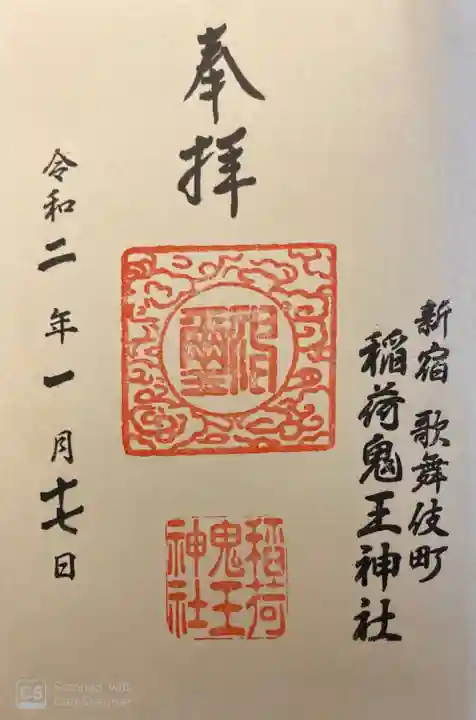 奉拝
新宿 歌舞伎町
稲荷鬼王神社
稲荷
鬼王
神社
令和二年一月十七日
CS
Scanned with
CamScanner